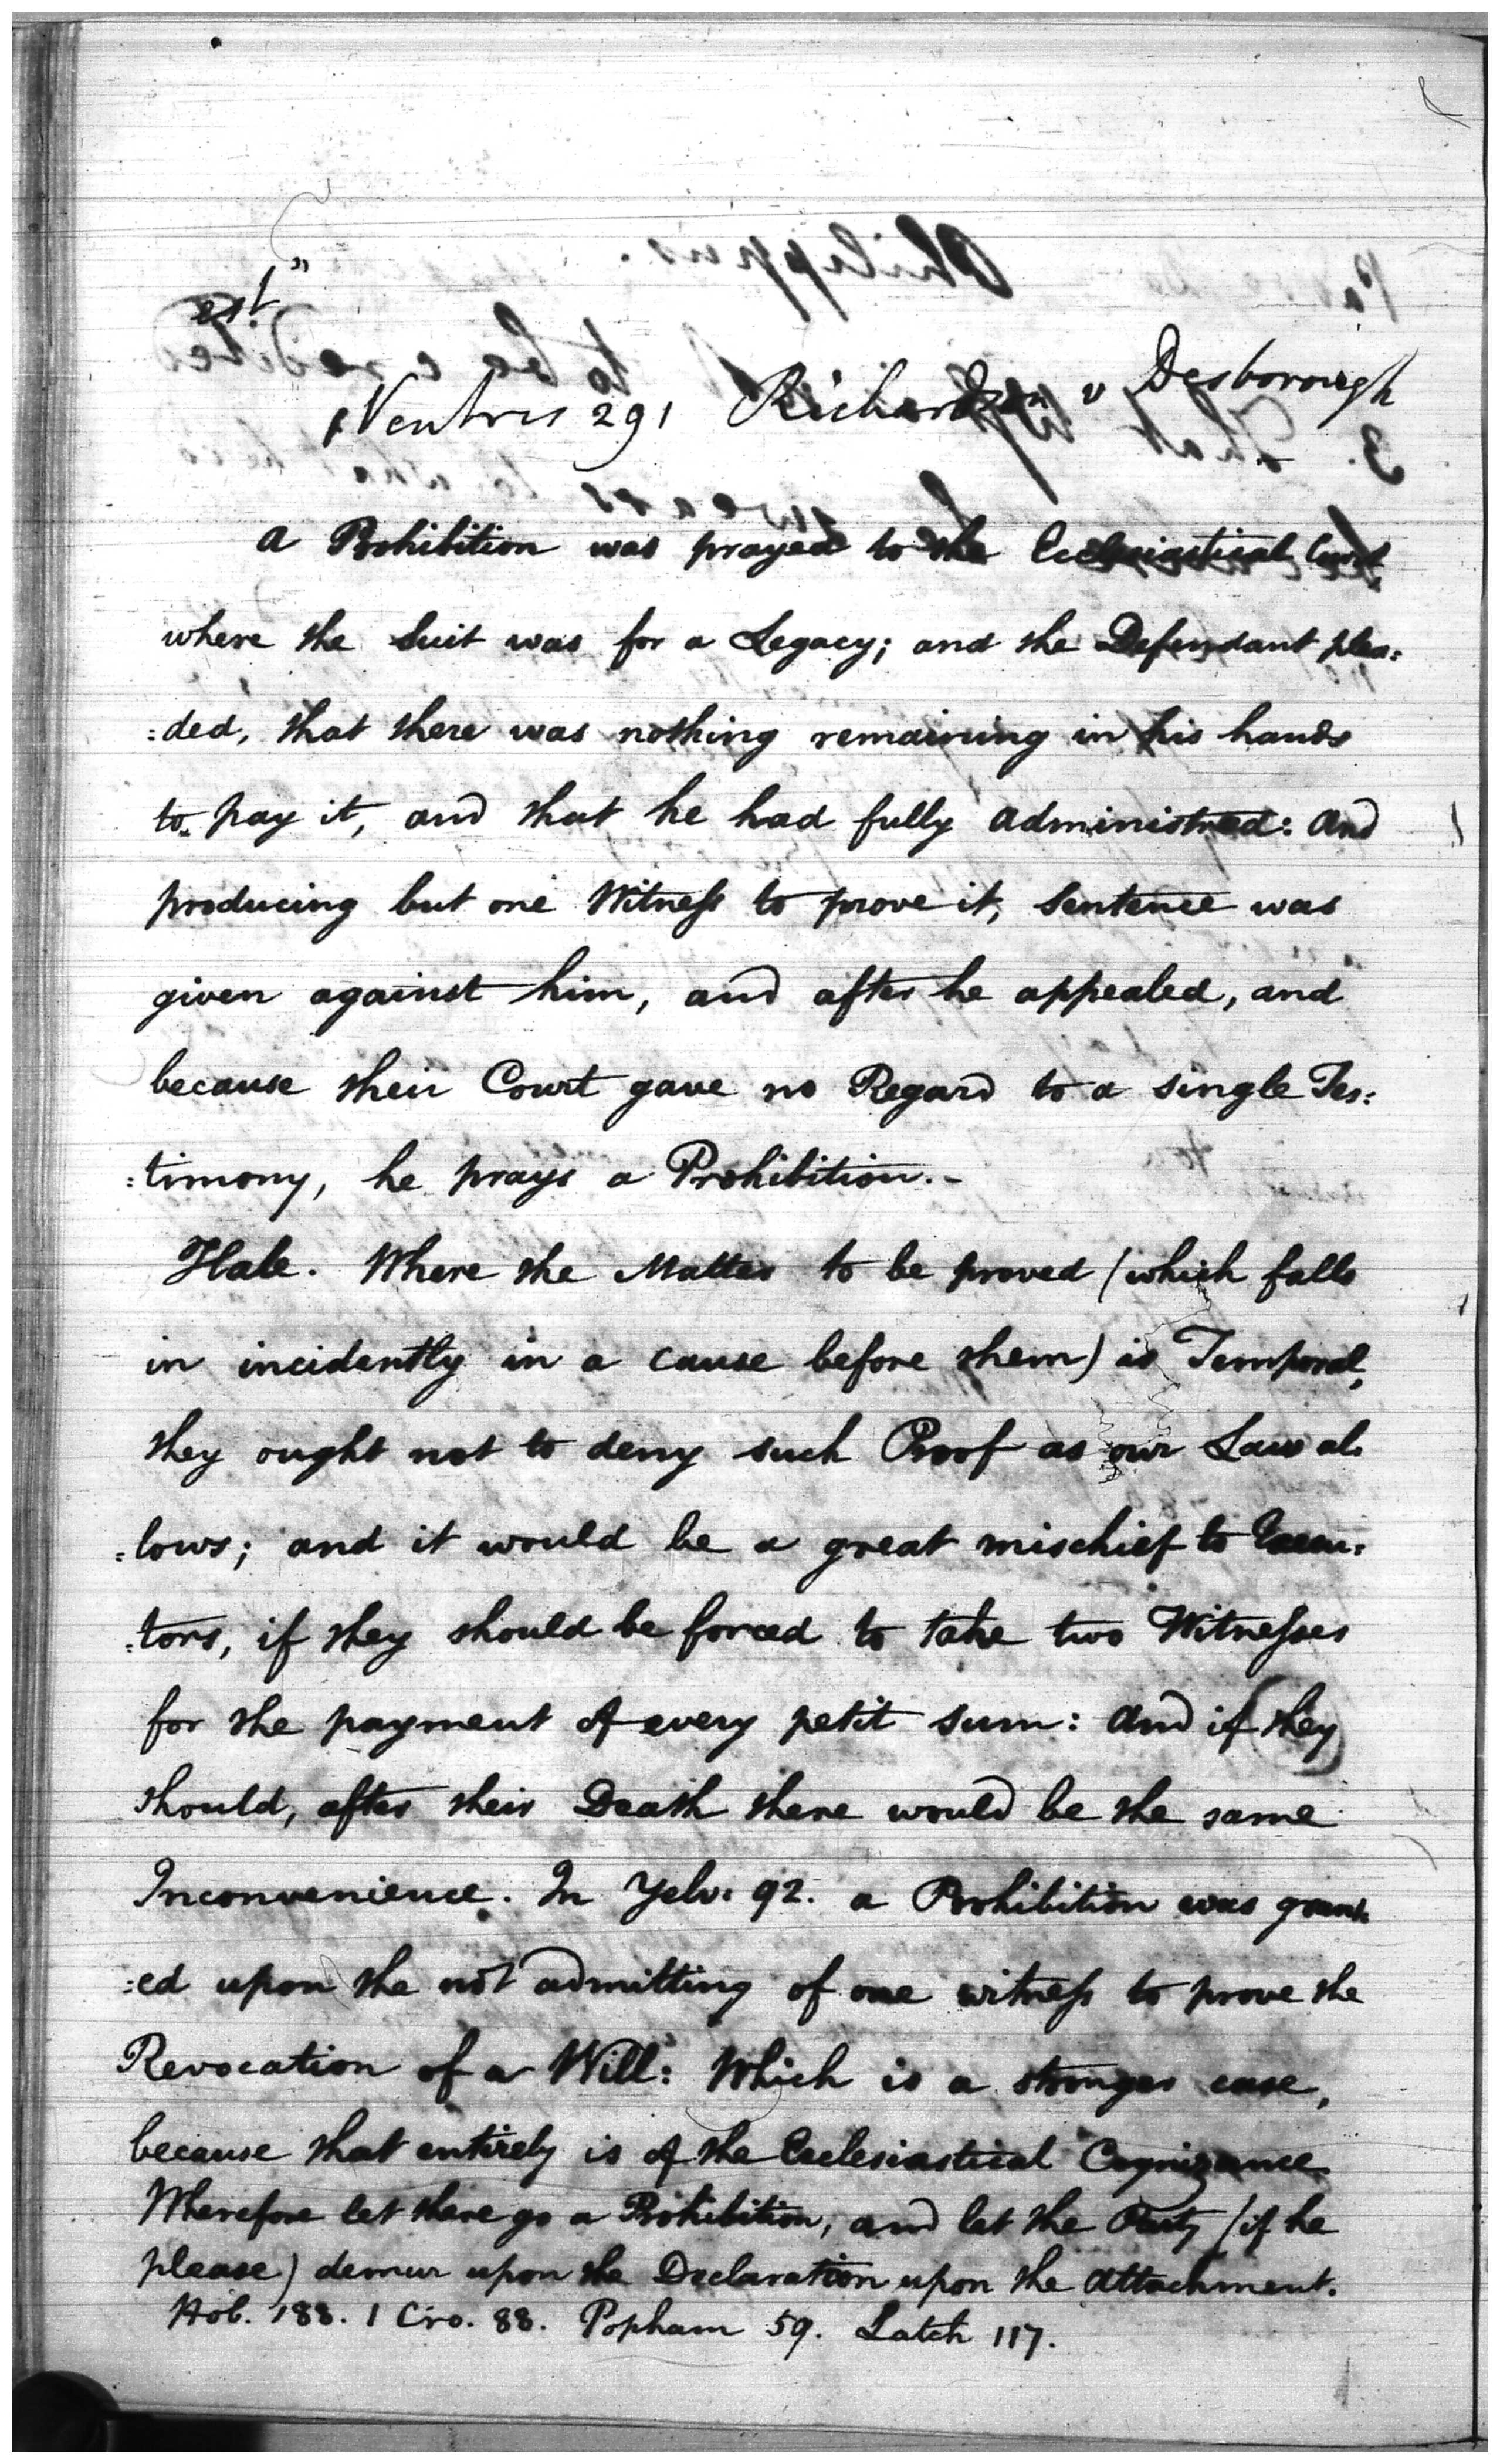 est
1 Ventris 291 Richardson v Desborough
A Prohibition was prayed to the Ecclesiastical Court
where the Suit was for a Legacy; and the Defendant plea:
:ded, that there was nothing remaining in his hands
to pay it, and that he had fully administred: And
producing but one Witneſs to prove it, Sentence was
given against him, and after he appealed, and
because their Court gave no Regard to a single Tes:
:timony, he prays a Prohibition.-
Hale. Where the Matter to be proved (which falls
in incidently in a cause before them) is Temporal,
they ought not to deny such Proof as our Law al:
:lows; and it would be a great mischief to Execu:
:tors, if they should be forced to take two Witneſses
for the payment of every petit sum: And if they
should, after their Death there would be the same
Inconvenience. In Yelv. 92. a Prohibition was grant:
:ed upon the not admitting of one witneſs to prove the
Revocation of a Will: Which is a stronger case,
because that entirely is of the Ecclesiastical Cognizance.
Wherefore let there go a Prohibition, and let the Party (if he
please) demur upon the Declaration upon the Attachment.
Hob. 188. 1 Cro. 88. Popham 59. Latch 117.